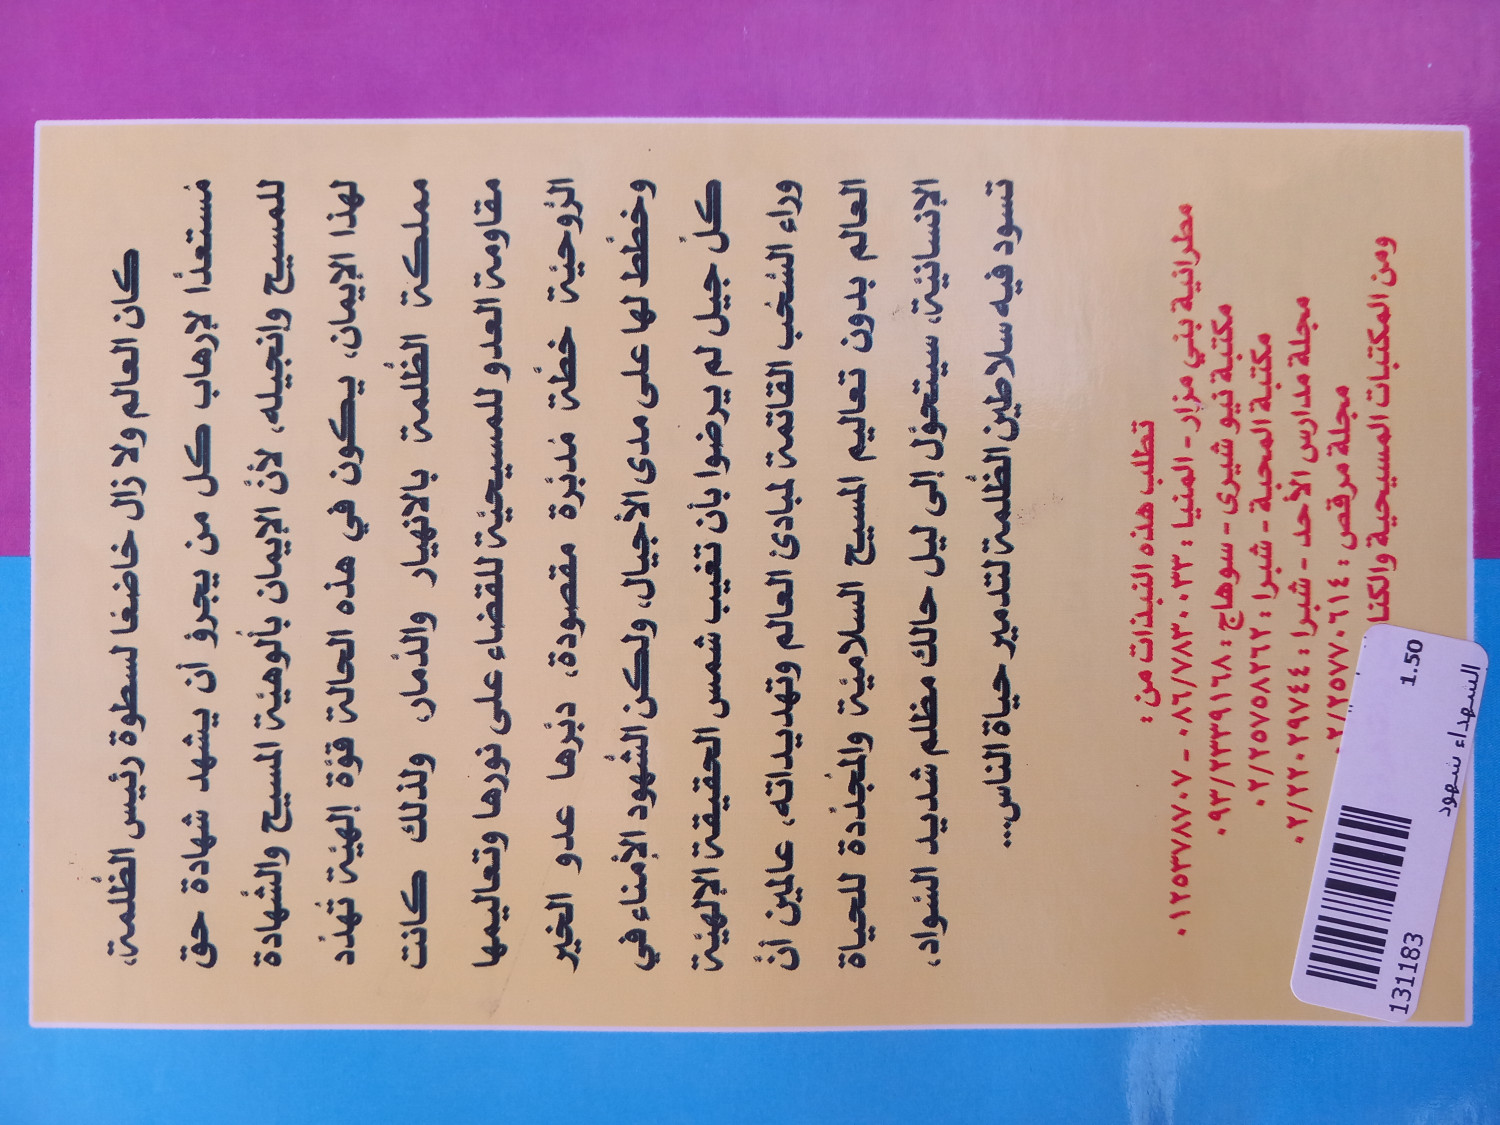 كان العالم ولا زال خاضعًا لسطوة رئيس الظُّلمة،
مُستعدًّا لإرهاب كل من يجرؤ أن يشهد شهادة حق
للمسيح وإنجيله، لأنَّ الإيمان بألوهيَّة المسيح والشَّهادة
لهذا الإيمان، يكون في هذه الحالة قوَّة إلهيَّة تُهدِّد
مملكة الظُّلمة بالانهيار والدَّمار، ولذلك كانت
مقاومة العدو للمسيحيَّة للقضاء على نورها وتعاليمها
الرُّوحيَّة خطَّة مُدبَّرة مقصودة، دبَّرها عدو الخير
وخطَّط لها على مدى الأجيال، ولكن الشُّهود الأُمناء في
كلّ جيل لم يرضوا بأن تغيب شمس الحقيقة الإلهيَّة
وراء السُّحُب القاتمة لمبادئ العالم وتهديداته، عالمين أنَّ
العالم بدون تعاليم المسيح السلاميَّة والمُجدِّدة للحياة
الإنسانيَّة، سيتحوَّل إلى ليل حالك مظلم شديد السَّواد،
تسود فيه سلاطين الظُّلمة لتدمير حياة الناس...
تطلب هذه النبذات من :
مطرانية بني مزار - المنيا : ٠٨٦/٧٨٣٠٠٣٣ - ٠١٢٥٣٧٨٧٠٧
مكتبة نيو شيرى - سوهاج : ٠٩٣/٢٣٣٩١٦٨
مكتبة المحبة - شبرا : ٠٢/٢٥٧٥٨٢٦٢
مجلة مدارس الأحد - شبرا : ٠٢/٢٢٠٢٩٧٤٤
مجلة مرقص : ٠٢/٢٥٧٧٠٦١٤
ومن المكتبات المسيحية والكنا
1.50
الشهداء شهود
131183